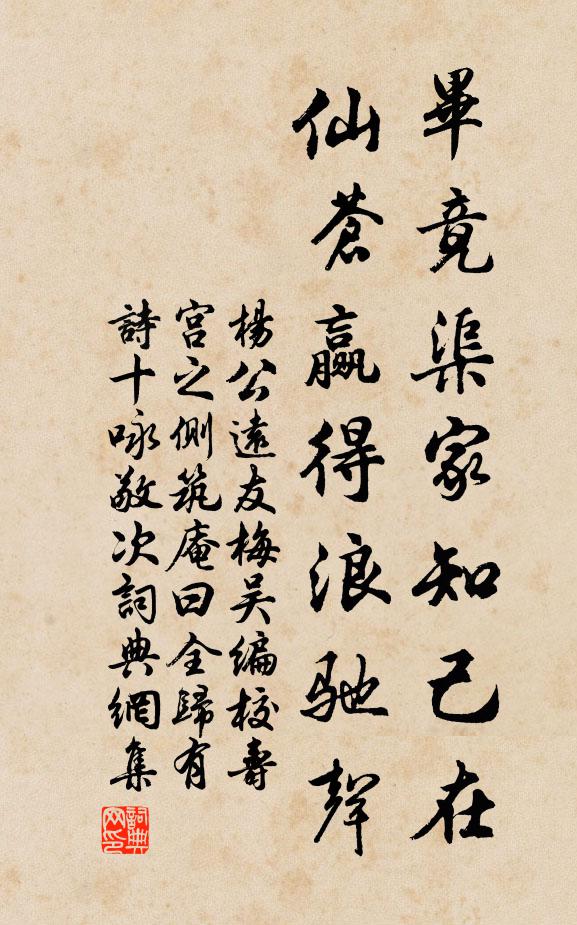 畢竟渠家知己在
仙蒼贏得浪馳聲
楊公遠友梅吴編校壽
宫之側筑庵曰全歸有
詩十咏敬次詞典網集
詞典
网印